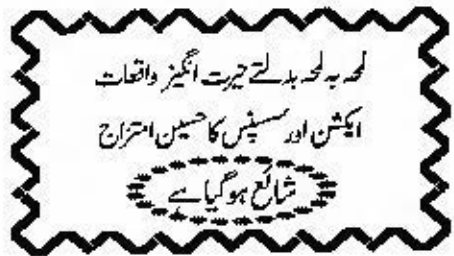 لمحہ بہ لمحہ بدلتے حیرت انگیز واقعات
ایکشن اور سسپنس کا حسین امتزاج
شائع ہو گیا ہے